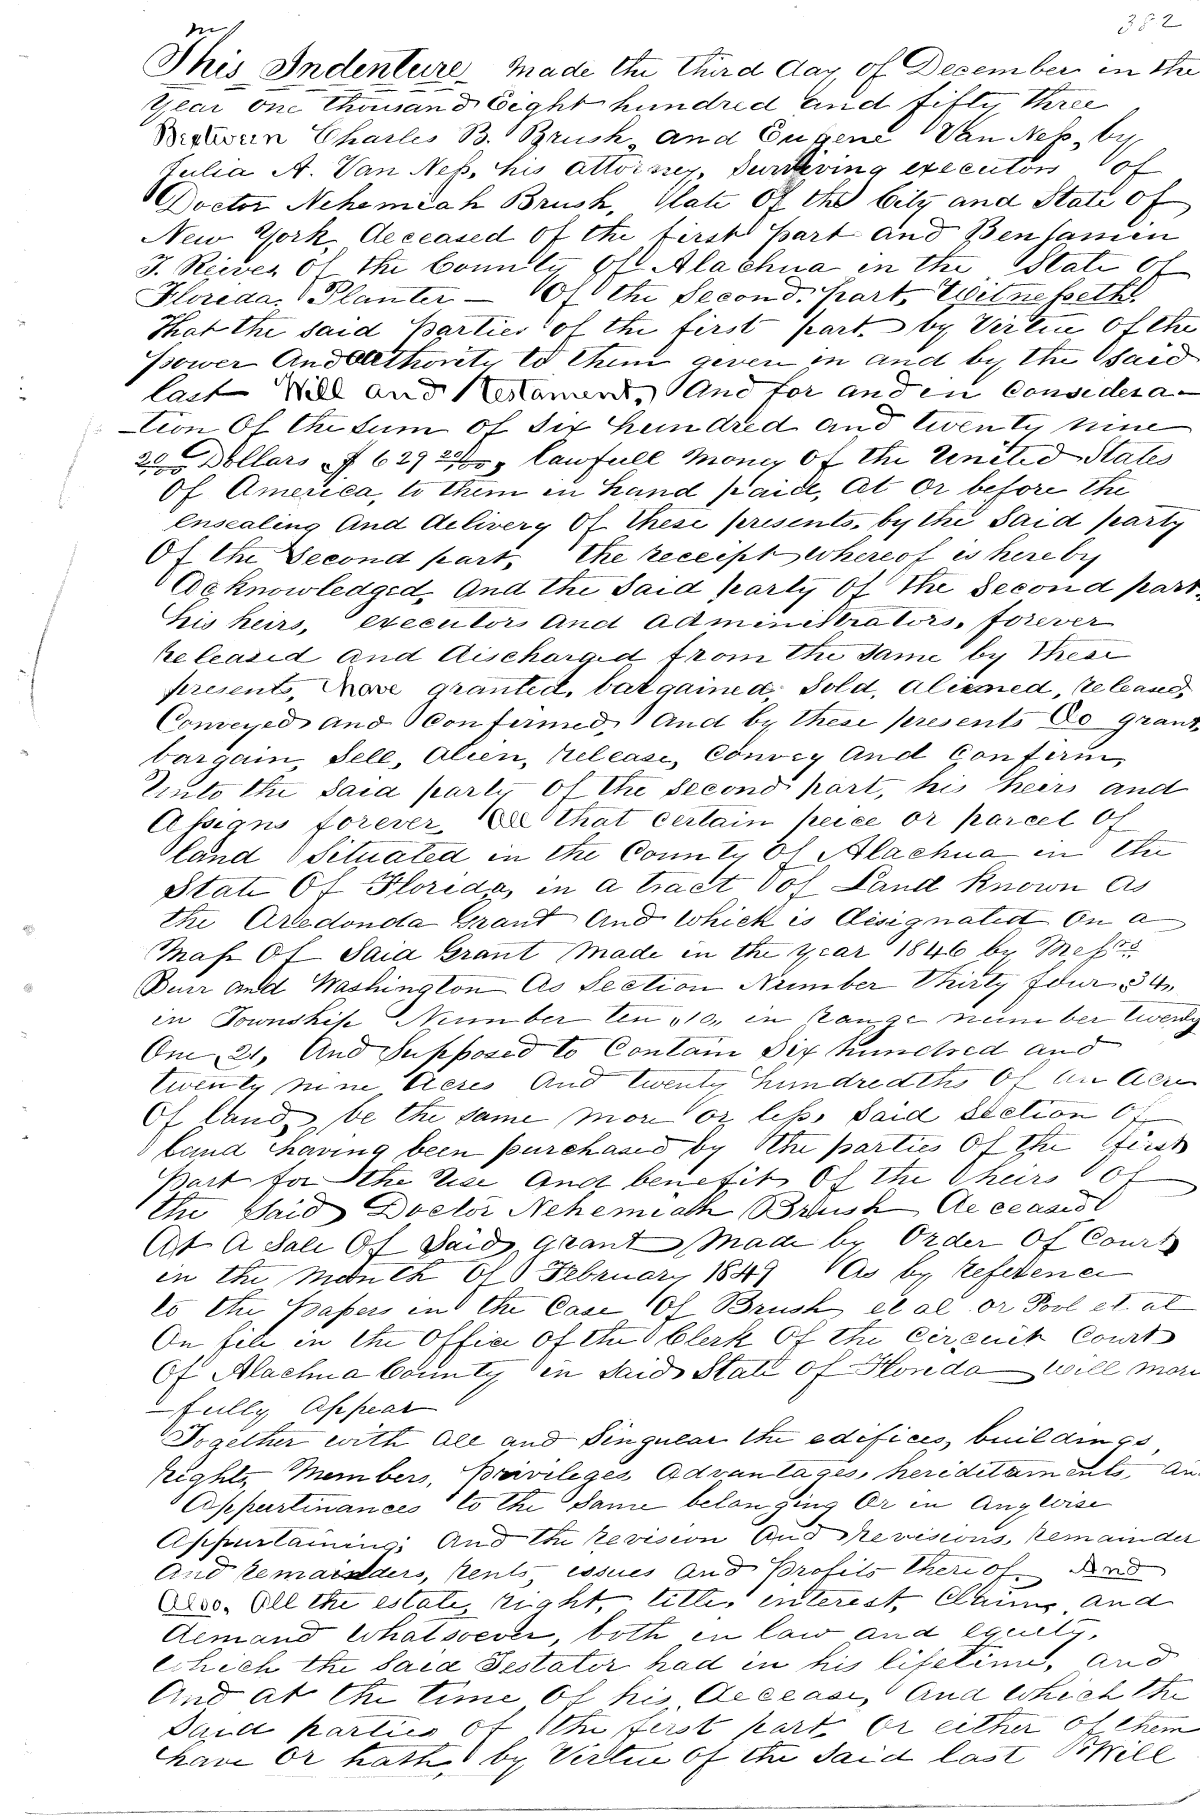 382
This Indenture, Made the third day, of December in the
Year one thousand Eight hundred and fifty three
Between Charles B. Brush, and Eugene Van Ness, by
Julia A. Van Ness, his attorney, Surviving executors of
Doctor Nehemiah Brush, late Of the City and State of
New York, deceased of the first part and Benjamin
J. Reives Of the County Of Alachua in the State of
Florida, Planter — Of the Second. part, Witnesseth.
That the said parties of the first part, by Virtue Of the
power And authority to them given in and by the Said
last Will and Testament, And for and in Considera-
-tion Of the sum of Six hundred and twenty nine
20/100 Dollars $629 20/100, lawfull Money Of the United States
Of America, to them in hand paid, At or before the
ensealing And delivery Of these presents, by the Said party
Of the Second part, the receipt whereof is hereby
Acknowledged, And the Said party Of the Second part,
his heirs, executors and administrators, forever
released and discharged from the same by these
presents, have granted, bargained, Sold, aliened, released,
Conveyed and Confirmed, And by these presents Do grant,
bargain, Sell, Alien, release, Convey And Confirm,
Unto the Said party Of the Second part, his heirs and
Assigns forever, All that certain peice or parcel Of
land Situated in the County Of Alachua in the
State Of Florida, in a tract of Land Known As
the Aredonda Grant And which is designated On a
Map Of Said Grant Made in the year 1846 by Messrs.
Burr and Washington As Section Number Thirty four "34"
in Township Number ten "10" in range number twenty
One "21", And Supposed to Contain Six hundred and
twenty nine Acres And twenty hundredths Of an Acre
Of land, be the same more or less, Said Section Of
land having been purchased by the parties Of the first
part for the Use And benefit Of the heirs Of
the Said Doctor Nehemiah Brush, deceased
At A Sale Of Said grant Made by Order Of Court
in the Month Of February 1849 As by reference
to the papers in the Case Of Brush et al or Pool et. al
On file in the Office of the Clerk Of the Circuit Court
Of Alachua County in Said State of Florida will more
-fully Appear
Together with All and Singular the edifices, buildings,
rights, Members, Privileges Advantages, heriditaments, an
Appurtinances to the Same belonging Or in Anywise
Appurtaining; And the revision And revisions, remainder
And remainders, rents, issues and profits thereof. And
Also, All the estate, right, title, interest, Claim, and
demand whatsoever, both in law and equity,
which the Said Testator had in his lifetime, and
And at the time Of his decease, And which the
Said parties of the first part, Or either of them
have Or hath, by Virtue of the Said last Will